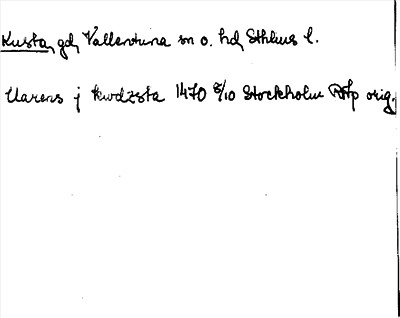 Kusta, gd, Vallentuna sn o. hd, Sthlms l.
Clarens j kwdzsta 1470 5/10 Stockholm RAp orig.